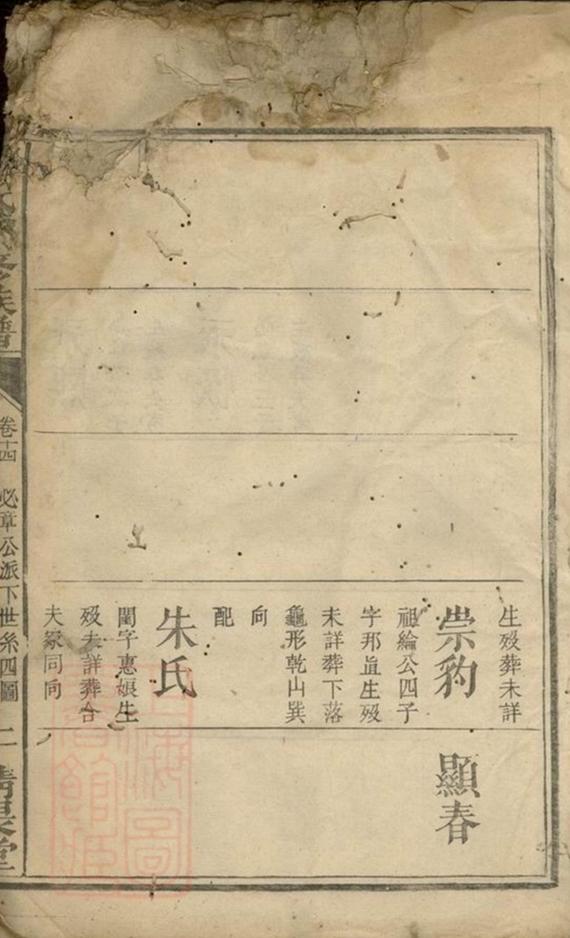 生殁葬未詳
崇豹
祖綸公四子
字邦直生殁
未詳葬下落
龜形乾山巽
向
配
朱氏
閨字惠娘生
殁未詳葬合
夫冢同向
顯春
族譜
卷十四 必章公派下世系四圖 二
堂